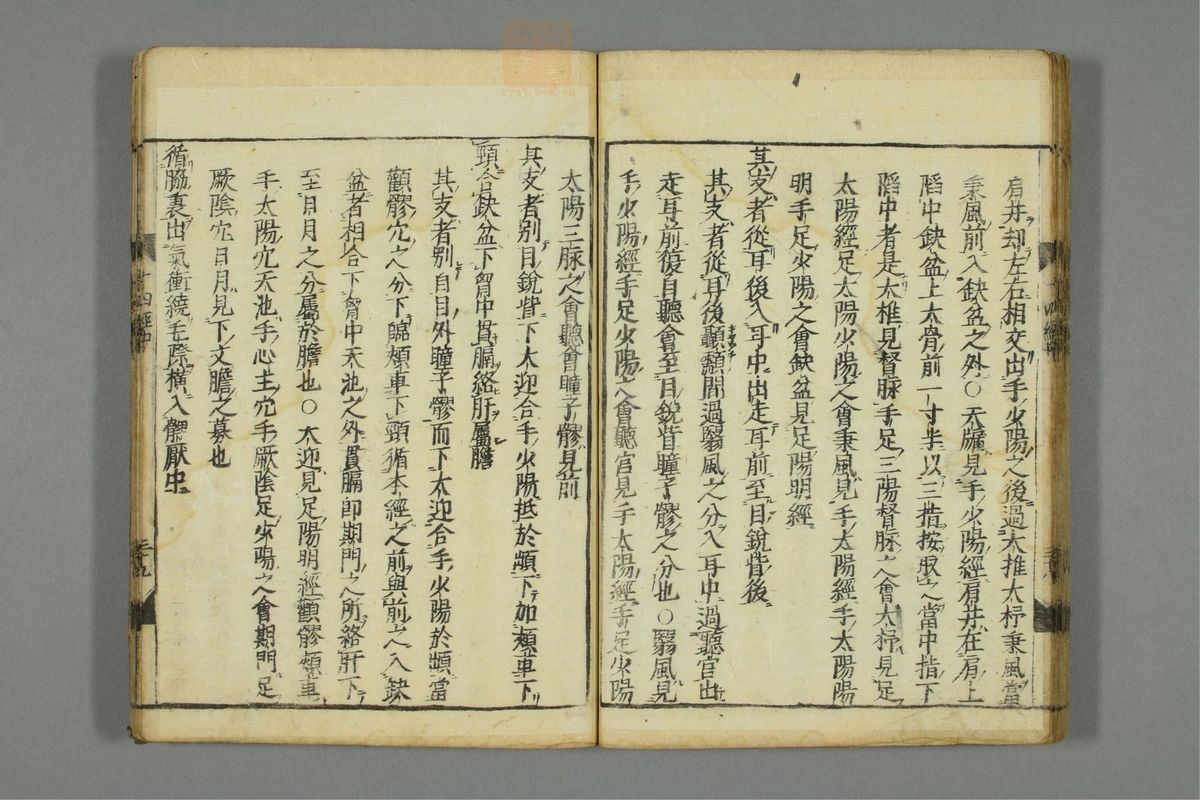 肩井却左右相交出手少陽之後過大推大杼秉風當
秉風前入缺盆之外○天牖見手少陽經肩井在肩上
陷中缺盆上大骨前一寸半以三指按取之當中指下
陷中者是大椎見督脉手足三陽督脉之會大杼見足
太陽經足太陽少陽之會秉風見手太陽經手太陽陽
明手足少陽之會缺盆見足陽明經
其支者從耳後入耳中出走耳前至目銳眥後
其支者從耳後顳顬間過翳風之分入耳中過聽宮出
走耳前復自聽會至目銳眥瞳子髎之分也○翳風見
手少陽經手足少陽之會聽宮見手太陽經手足少陽
太陽三脉之會聽會瞳子髎見前
其支者別目銳眥下大迎合手少陽抵於䪼下加頰車下
頸合缺盆下胷中貫膈絡肝屬膽
其支者別自目外瞳子髎而下大迎合手少陽於䪼當
顴髎穴之分下臨頰車下頸循本經之前與前之入缺
盆者相合下胷中天池之外貫膈即期門之所絡肝下
至日月之分屬於膽也○大迎見足陽明經顴髎頰車
手太陽穴天池手心主穴手厥陰足少陽之會期門足
厥陰穴日月見下文膽之募也
循脇裏出氣衝繞毛際橫入髀厭中
十四經中